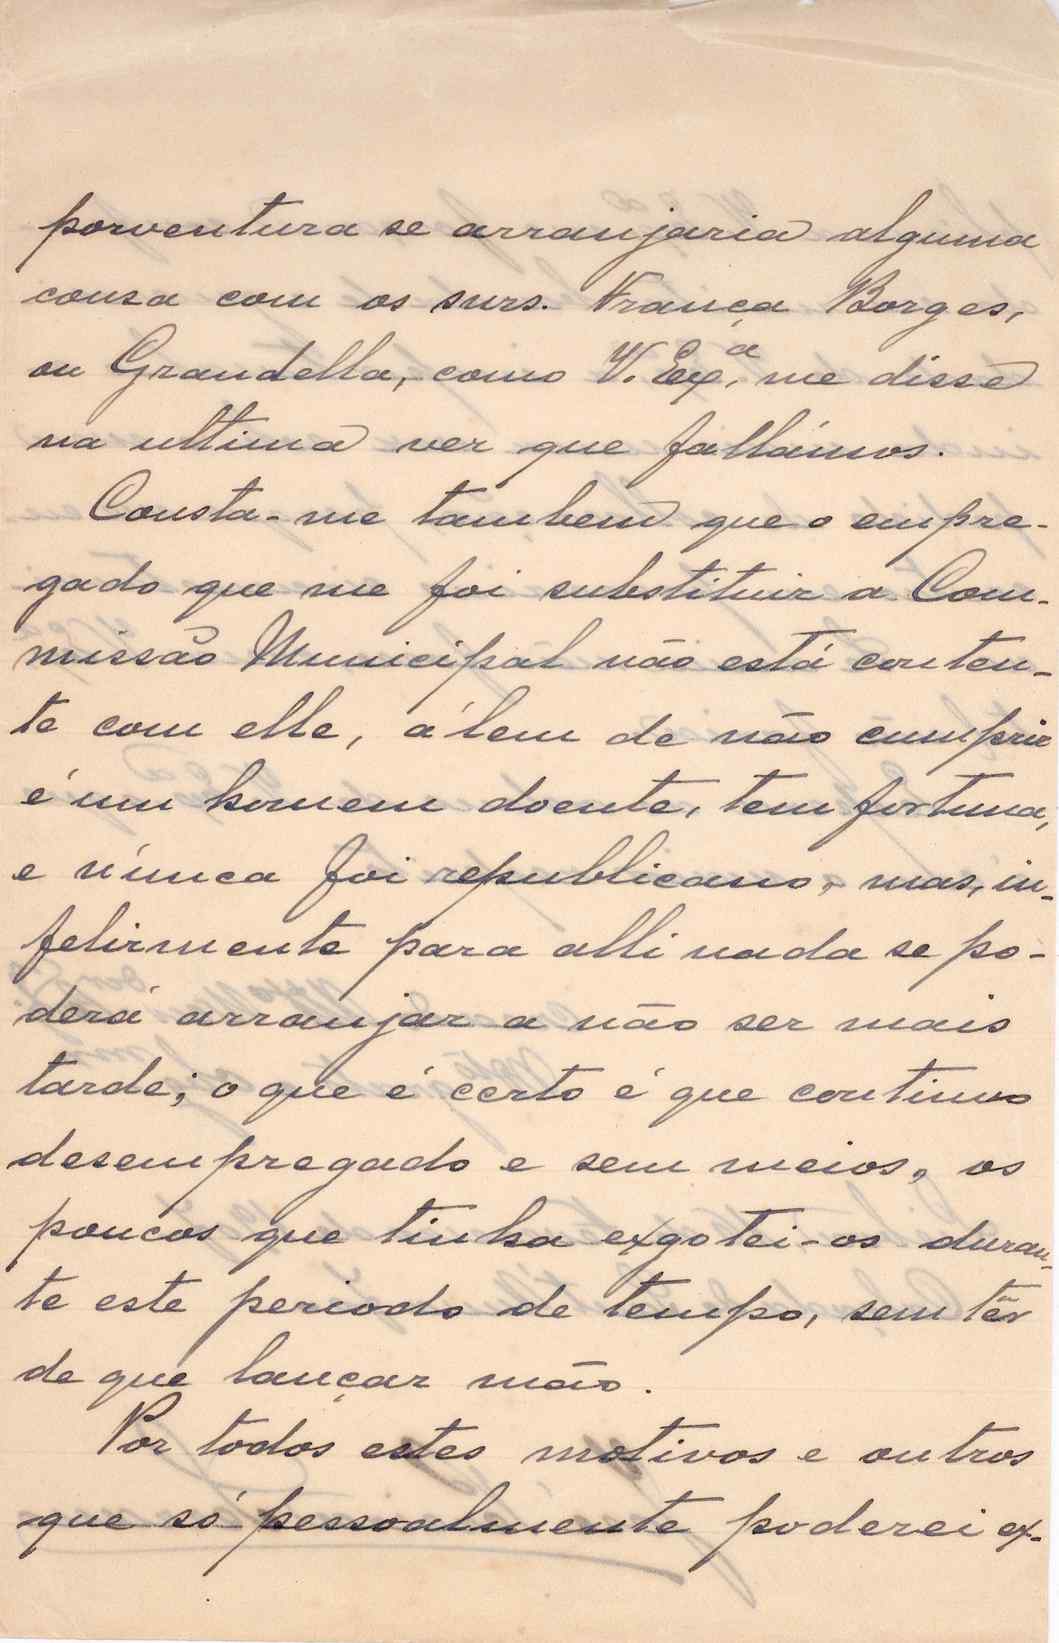 porventura se arranjaria alguma
cousa com os snrs. França Borges,
ou Grandella, como V. Exª, me disse
na ultima vez que fallámos.
Consta-me tambem que o empre-
gado que me foi substituir a Com-
missão Municipal não está conten-
te com elle, álem de não cumprir
é um homem doente, tem fortuna,
e núnca foi republicano, mas, in-
felizmente para alli nada se po-
derá arranjar a não ser mais
tarde; o que é certo é que continuo
desempregado e sem meios, os
poucos que tinha exgotei-os duran-
te este periodo de tempo, sem têr
de que lançar mão.
Por todos estes motivos e outros
que só pessoalmente poderei ex-